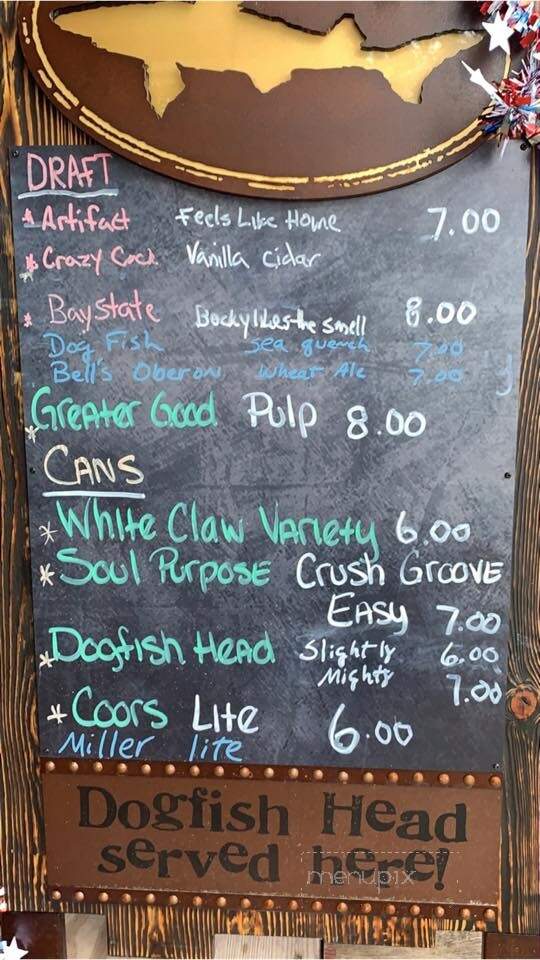 DRAFT
* Artifact Feels Like Home 7.00
* Crazy Cock Vanilla Cidar
* Baystate Becky likes the smell 8.00
Dog Fish Sea quench 7.00
Bell's Oberon Wheat Ale 7.00
* Greater Good Pulp 8.00
CANS
* White Claw Variety 6.00
* Soul Purpose Crush Groove
Easy 7.00
* Dogfish Head Slightly 6.00
Mighty 7.00
* Coors Lite 6.00
Miller lite
Dogfish Head
served here!
menupix